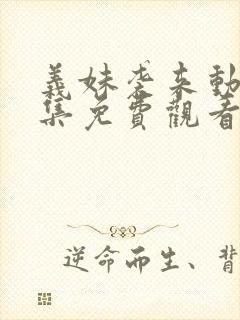 義妹袭来動
集免費觀看
逆命而生、背